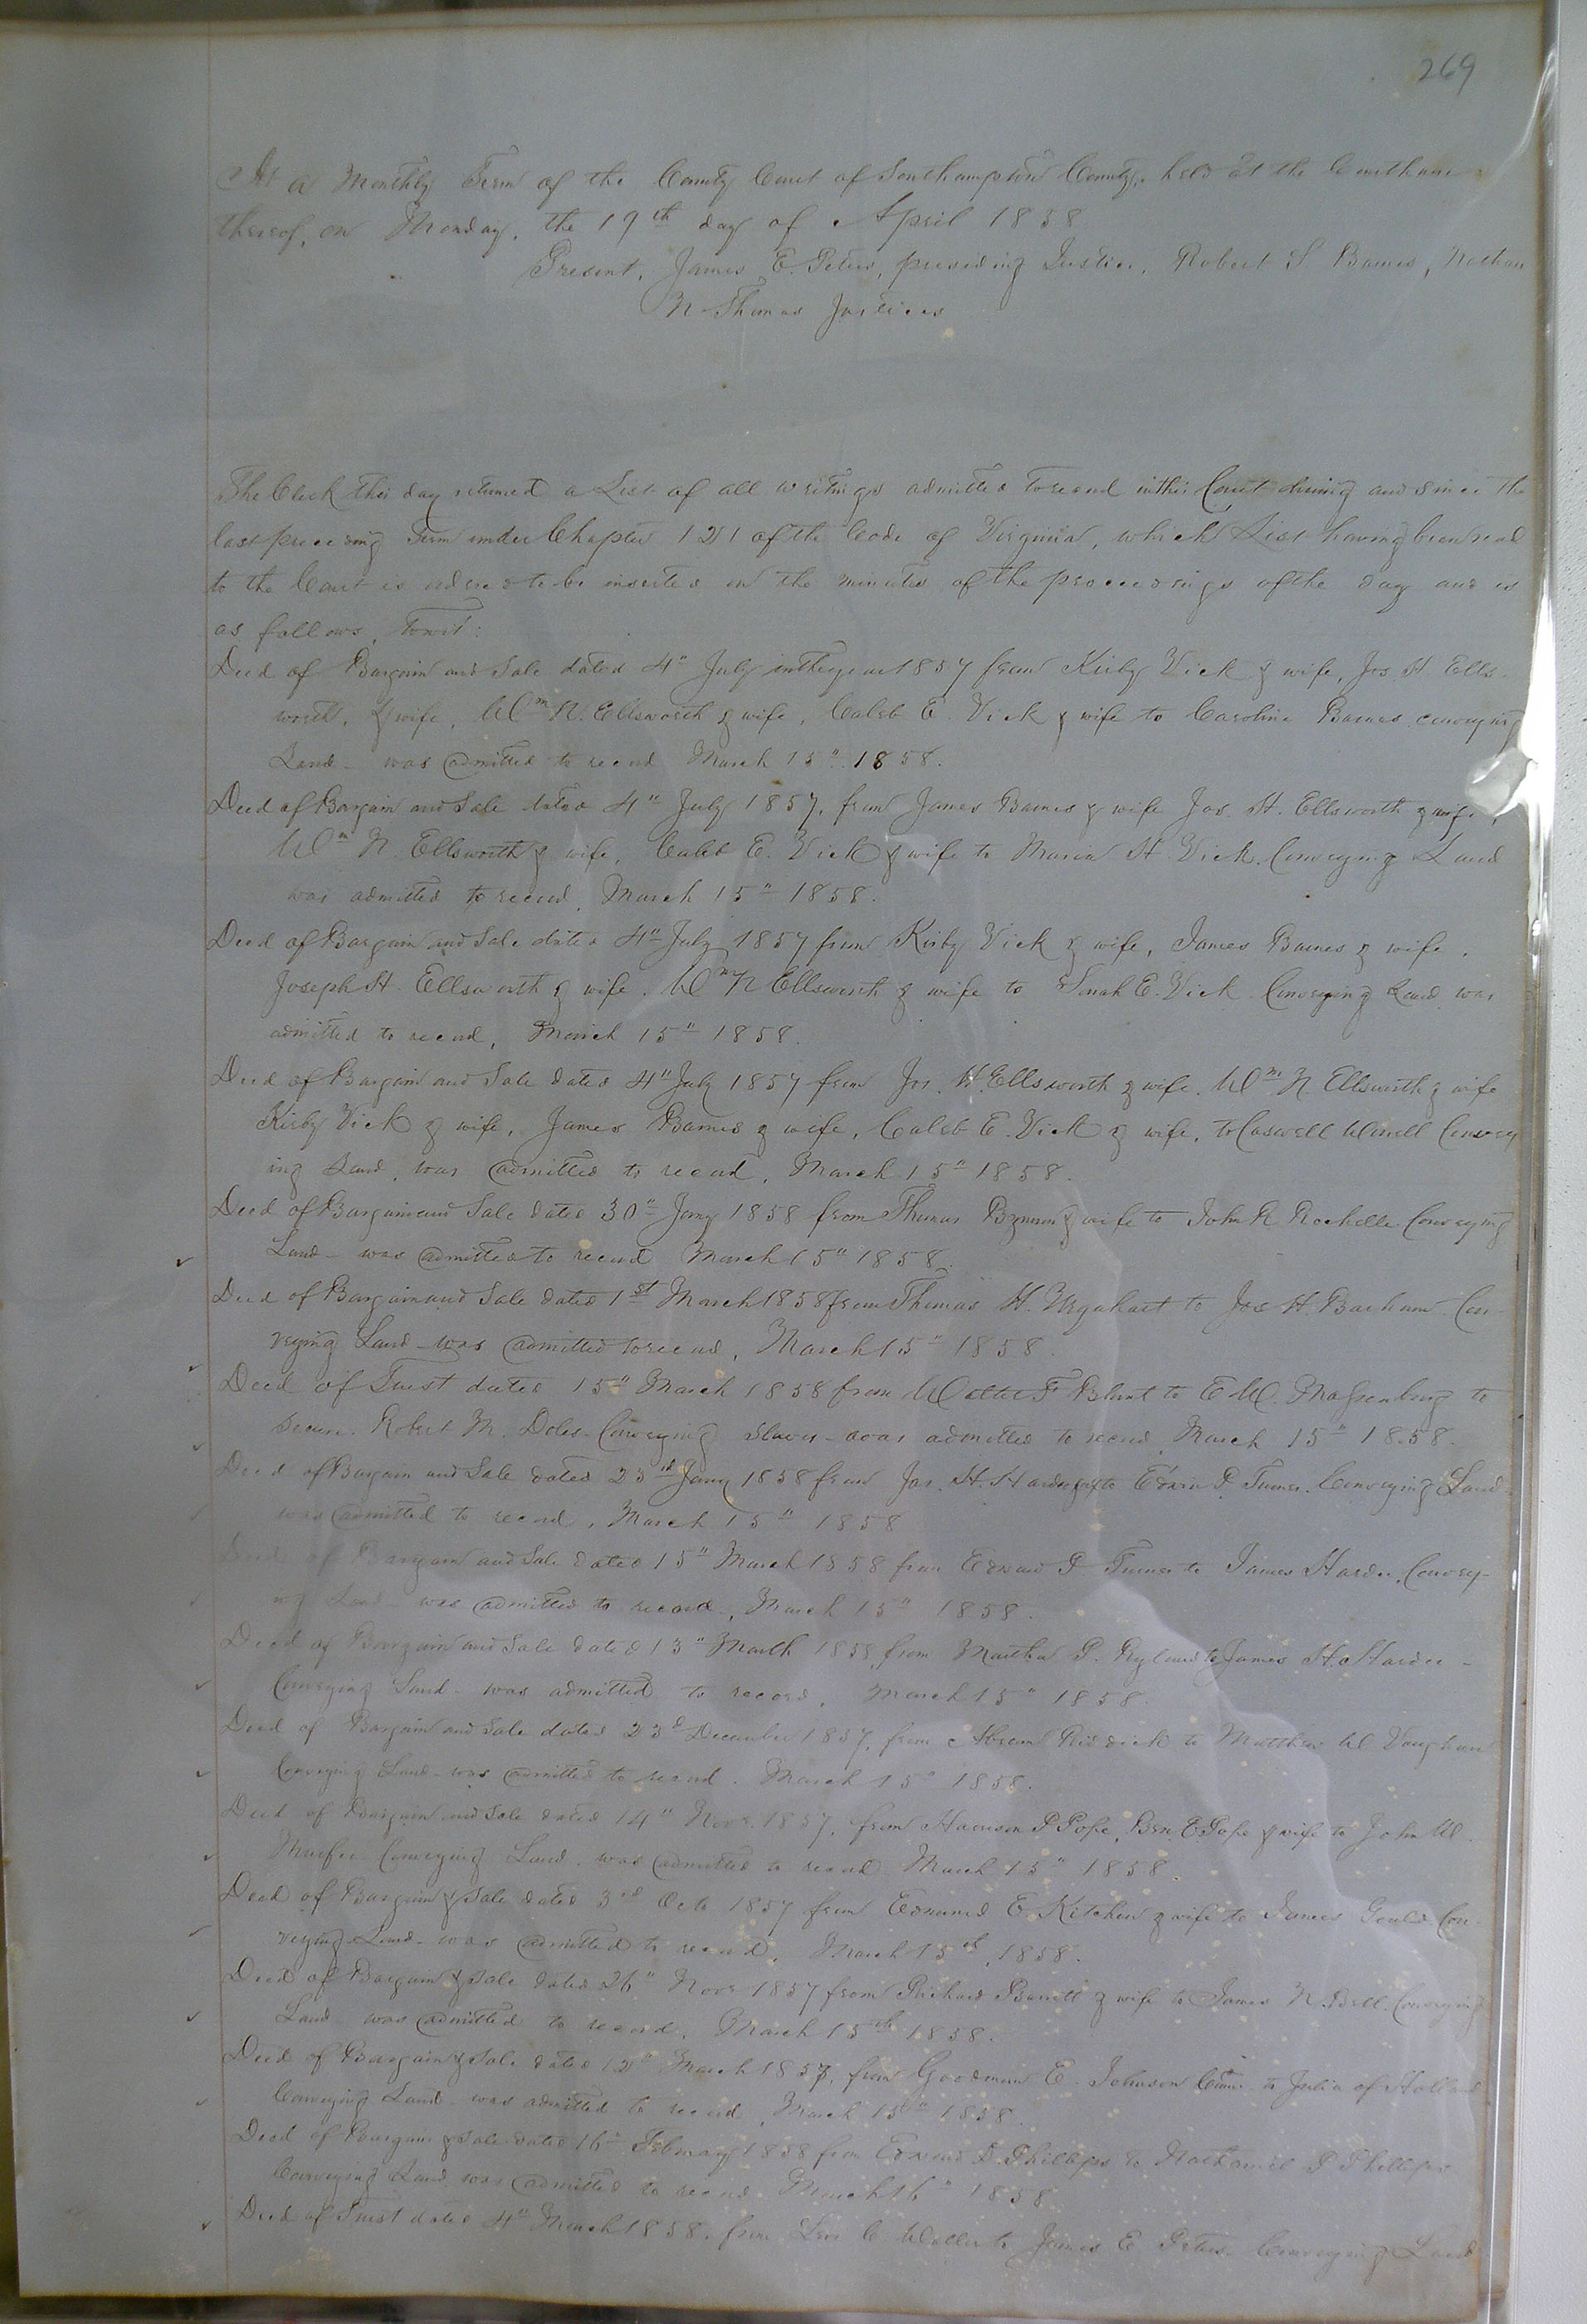 269
At a Monthly Term of the County Court of Southampton County, held at the Courthouse
thereof, on Monday, the 19th day of April 1858.
Present, James E. Peters, presiding Justice, Robert S Barnes, Nathan
N Thomas Justices
The Clerk this day returned a List of all writings admitted to record in this Court during and since the
last preceding Term under Chapter 121 of the Code of Virginia, which List having been read
to the Court is ordered to be inserted in the minutes of the proceedings of the day and is
as follows, Towit:
Deed of Bargain and Sale dated 4" July in the year 1857 from Kirby Vick & wife, Jos. H. Ells-
worth, & wife, Wm N. Ellsworth & wife, Caleb E. Vick & wife to Caroline Barnes conveying
Land - was admitted to record March 15" 1858.
Deed of Bargain and Sale dated 4" July 1857, from James Barnes & wife Jos. H. Ellsworth & wife,
Wm N. Ellsworth & wife, Caleb E. Vick & wife to Maria H. Vick. Conveying Land
was admitted to record, March 15" 1858.
Deed of Bargain and Sale dated 4" July 1857 from Kirby Vick & wife, James Barnes & wife,
Joseph H. Ellsworth & wife, Wm N Ellsworth & wife to Sarah E. Vick. Conveying Land was
admitted to record, March 15" 1858.
Deed of Bargain and Sale dated 4" July 1857 from Jos. H. Ellsworth & wife, Wm N. Ellsworth & wife
Kirby Vick & wife, James Barnes & wife, Caleb E. Vick & wife, to Caswell Worrell Convey
ing Land, was admitted to record, March 15" 1858.
Deed of Bargain and Sale dated 30" Jany 1858 from Thomas & wife to John R Rochelle Conveying
Land - was admitted to record March 15" 1858.
Deed of Bargain and Sale dated 1st March 1858 from Thomas H. Urquhart to Jos H. Barham Con-
veying Land - was admitted to record, March 15" 1858.
Deed of Trust dated 15" March 1858 from Walter F Blunt to E W. Massenburg to
secure Robert M. Doles - Conveying Slaves - was admitted to record, March 15" 1858.
Deed of Bargain and Sale dated 23rd Jany 1858 from Jas. H. to Edwin P Turner. Conveying Land
was admitted to record, March 15" 1858
Deed of Bargain and Sale dated 15" March 1858 from Edward P. Turner to James Harder, Convey-
ing Land - was admitted to record, March 15" 1858.
Deed of Bargain and Sale dated 13" March 1858, from Martha P. Ryland to James H. Hardee -
Conveying Land - was admitted to record, March 15" 1858.
Deed of Bargain and Sale dated 23d December 1857, from Abram Riddick to Matthew W Vaughan
Conveying Land - was admitted to record. March 15" 1858.
Deed of Bargain and Sale dated 14" Novr. 1857, from Harrison P Pope, Ben. E Pope & wife to John W.
Murfee Conveying Land, was admitted to record March 15" 1858.
Deed of Bargain & Sale dated 3rd Octo 1857 from Edmund E Kitchen & wife to James Gould Con-
veying Land - was admitted to record, March 15th, 1858.
Deed of Bargain & Sale dated 26" Novr 1857 from Richard Barrett & wife to James N. Bell. Conveying
Land - was admitted to record, March 15th 1858.
Deed of Bargain & Sale dated 12" March 1857, from Goodman E. Johnson to Julia of Holland
Conveying Land - was admitted to record, March 15th 1858.
Deed of Bargain & Sale dated 16" February 1858 from D. Phillips to Nathaniel P Phillips
Conveying Land was admitted to record. March 16" 1858
Deed of Trust dated 4th March 1858, from C. Waller to James E Peters. Conveying Land